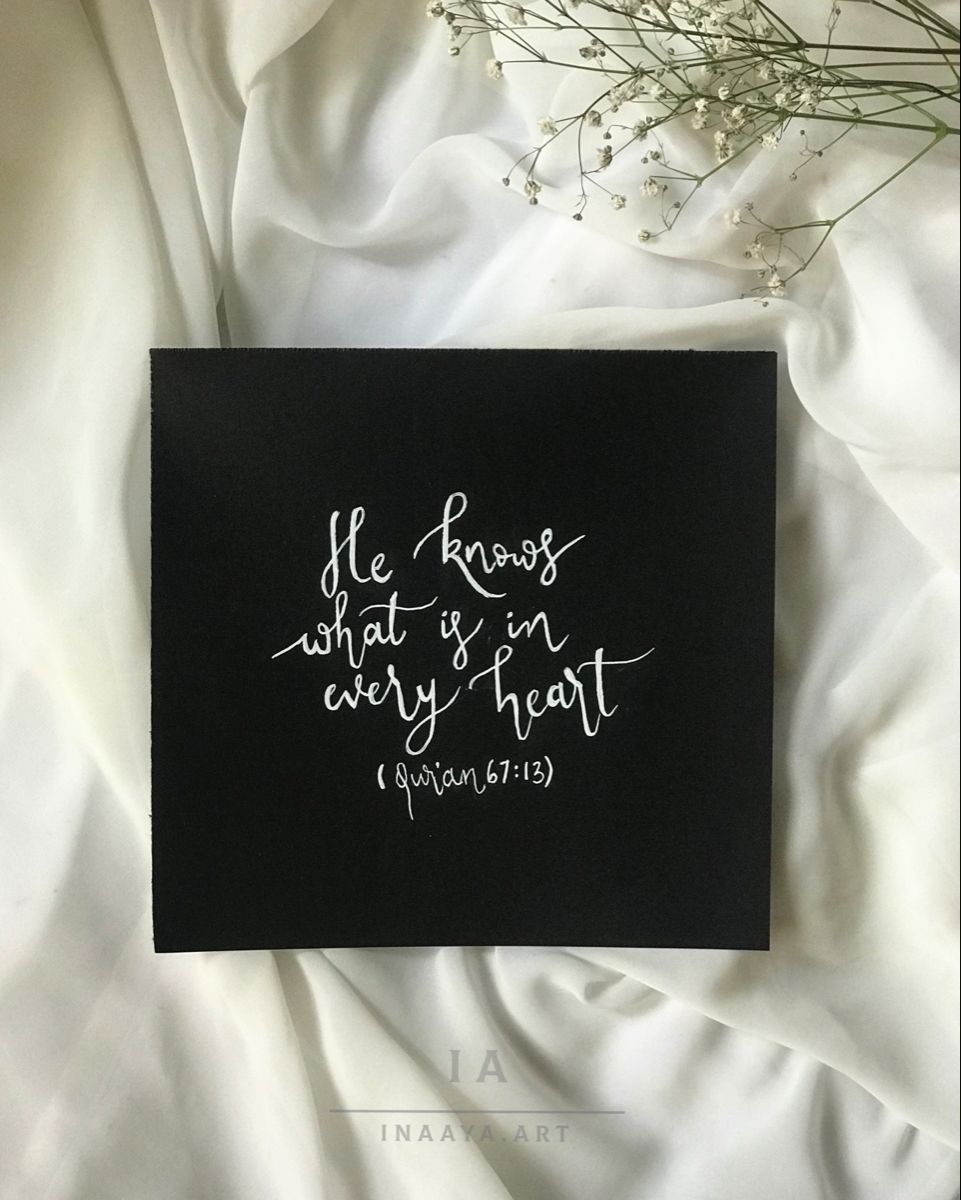 He knows
what is in
every heart
(Qur'an 67:13)
IA
INAAYA.ART